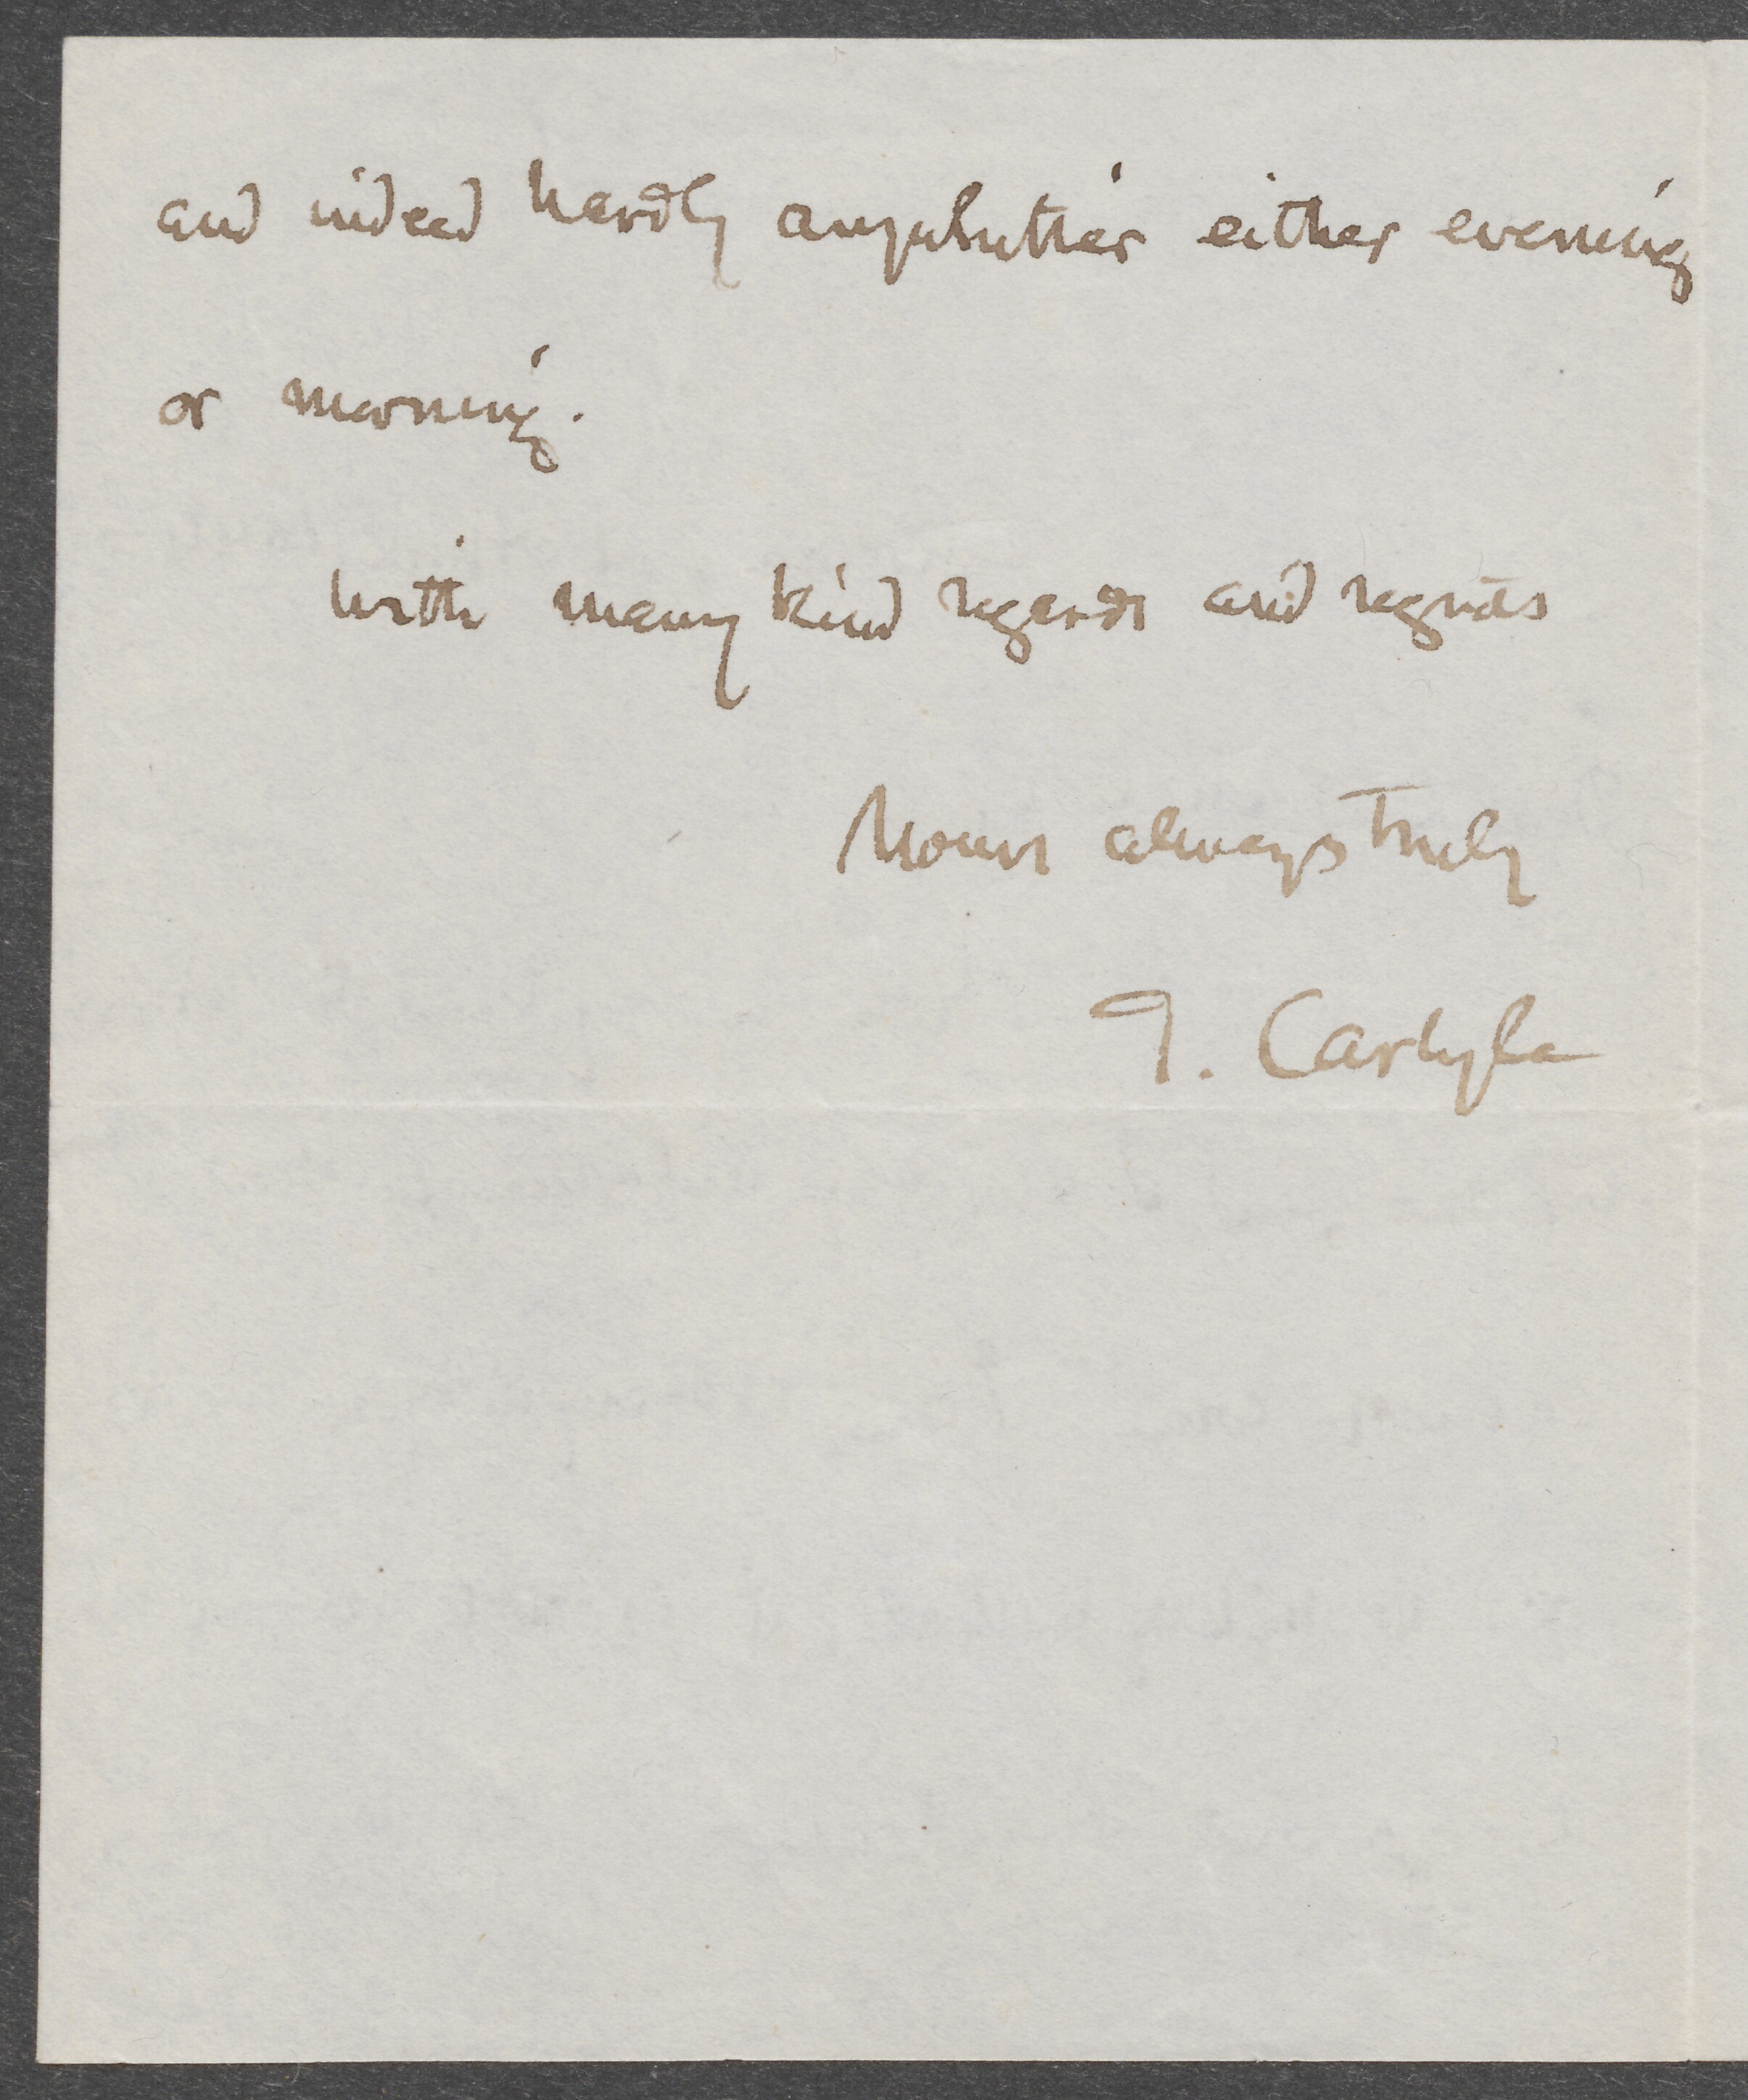 and indeed hardly anywhither either evening
or morning.
With many kind regards and regrets
Yours always truly
T. Carlyle